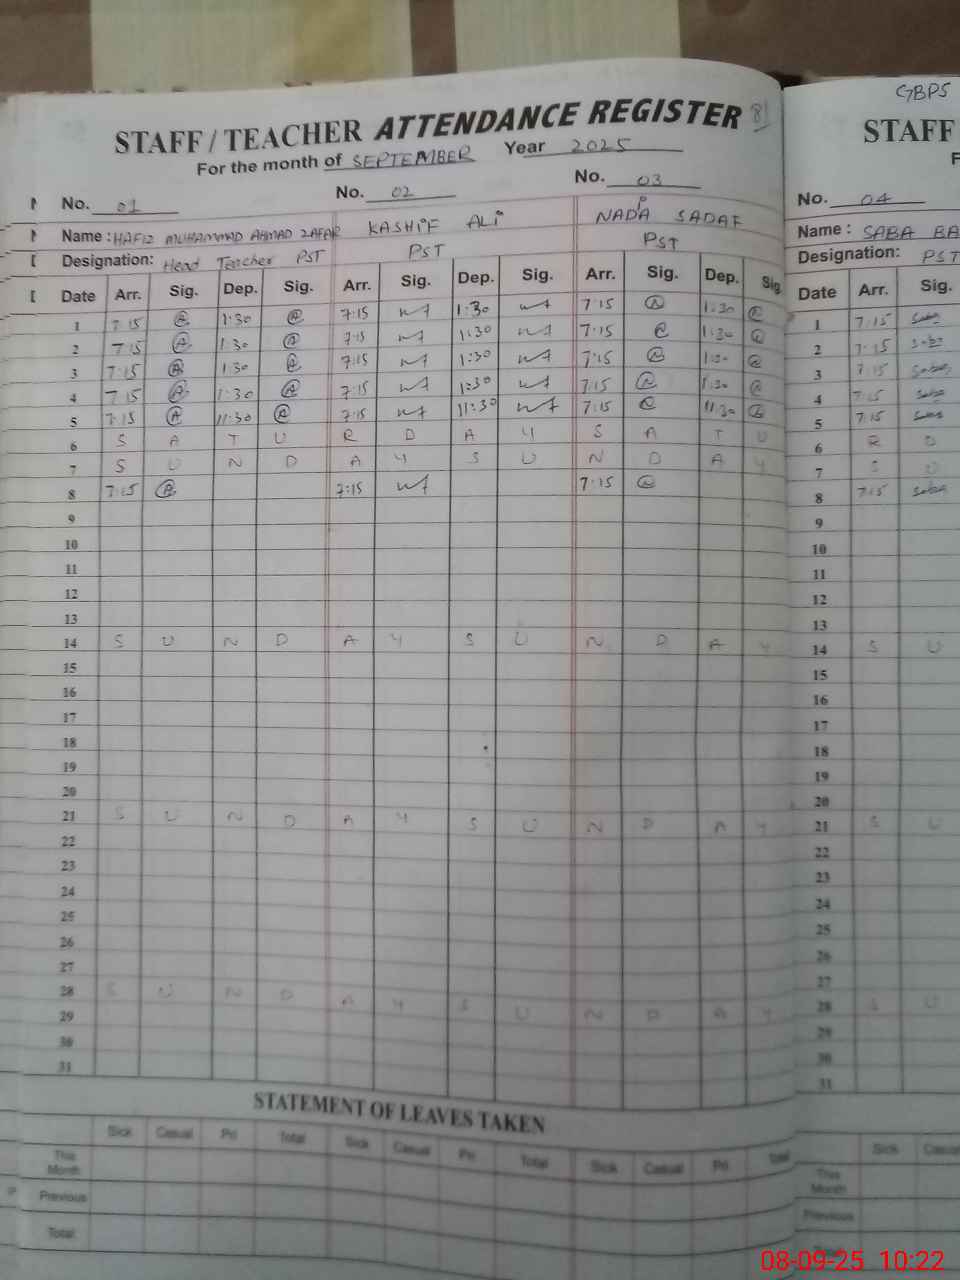 GBPS
STAFF / TEACHER ATTENDANCE REGISTER 81
STAFF
For the month of SEPTEMBER Year 2025
No. 01 No. 02 No. 03
No. 04
Name : HAFIZ MUHAMMAD AHMAD ZAFAR KASHIF ALI NADIA SADAF
Name : SABA BA
Designation: Head Teacher PST PST PST
Designation: PST
Date Arr. Sig. Dep. Sig. Arr. Sig. Dep. Sig. Arr. Sig. Dep. Sig
Date Arr. Sig.
1 7:15 1:30 7:15 1:30 7:15 1:30
1 7:15 Saba
2 7:15 1:30 7:15 1:30 7:15 1:30
2 7:15 Saba
3 7:15 1:30 7:15 1:30 7:15 1:30
3 7:15 Saba
4 7:15 1:30 7:15 1:30 7:15 1:30
4 7:15 Saba
5 7:15 11:30 7:15 11:30 7:15 11:30
5 7:15 Saba
6 S A T U R D A Y S A T U
6 R D
7 S U N D A Y S U N D A Y
7 S U
8 7:15 7:15 7:15
8 7:15 Saba
9
9
10
10
11
11
12
12
13
13
14 S U N D A Y S U N D A Y
14 S U
15
15
16
16
17
17
18
18
19
19
20
20
21 S U N D A Y S U N D A Y
21 S U
22
22
23
23
24
24
25
25
26
26
27
27
28 S U N D A Y S U N D A Y
28 S U
29
29
30
30
31
31
STATEMENT OF LEAVES TAKEN
Sick Casual Pri Total Sick Casual Pri Total Sick Casual Pri Total
Sick Casual
This Month
This Month
Previous
Previous
Total
08-09-25 10:22